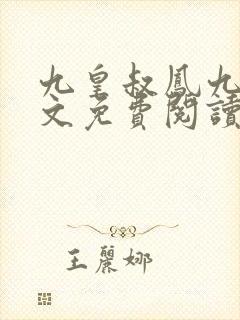 九皇叔鳳九
文免費閱讀
王麗娜